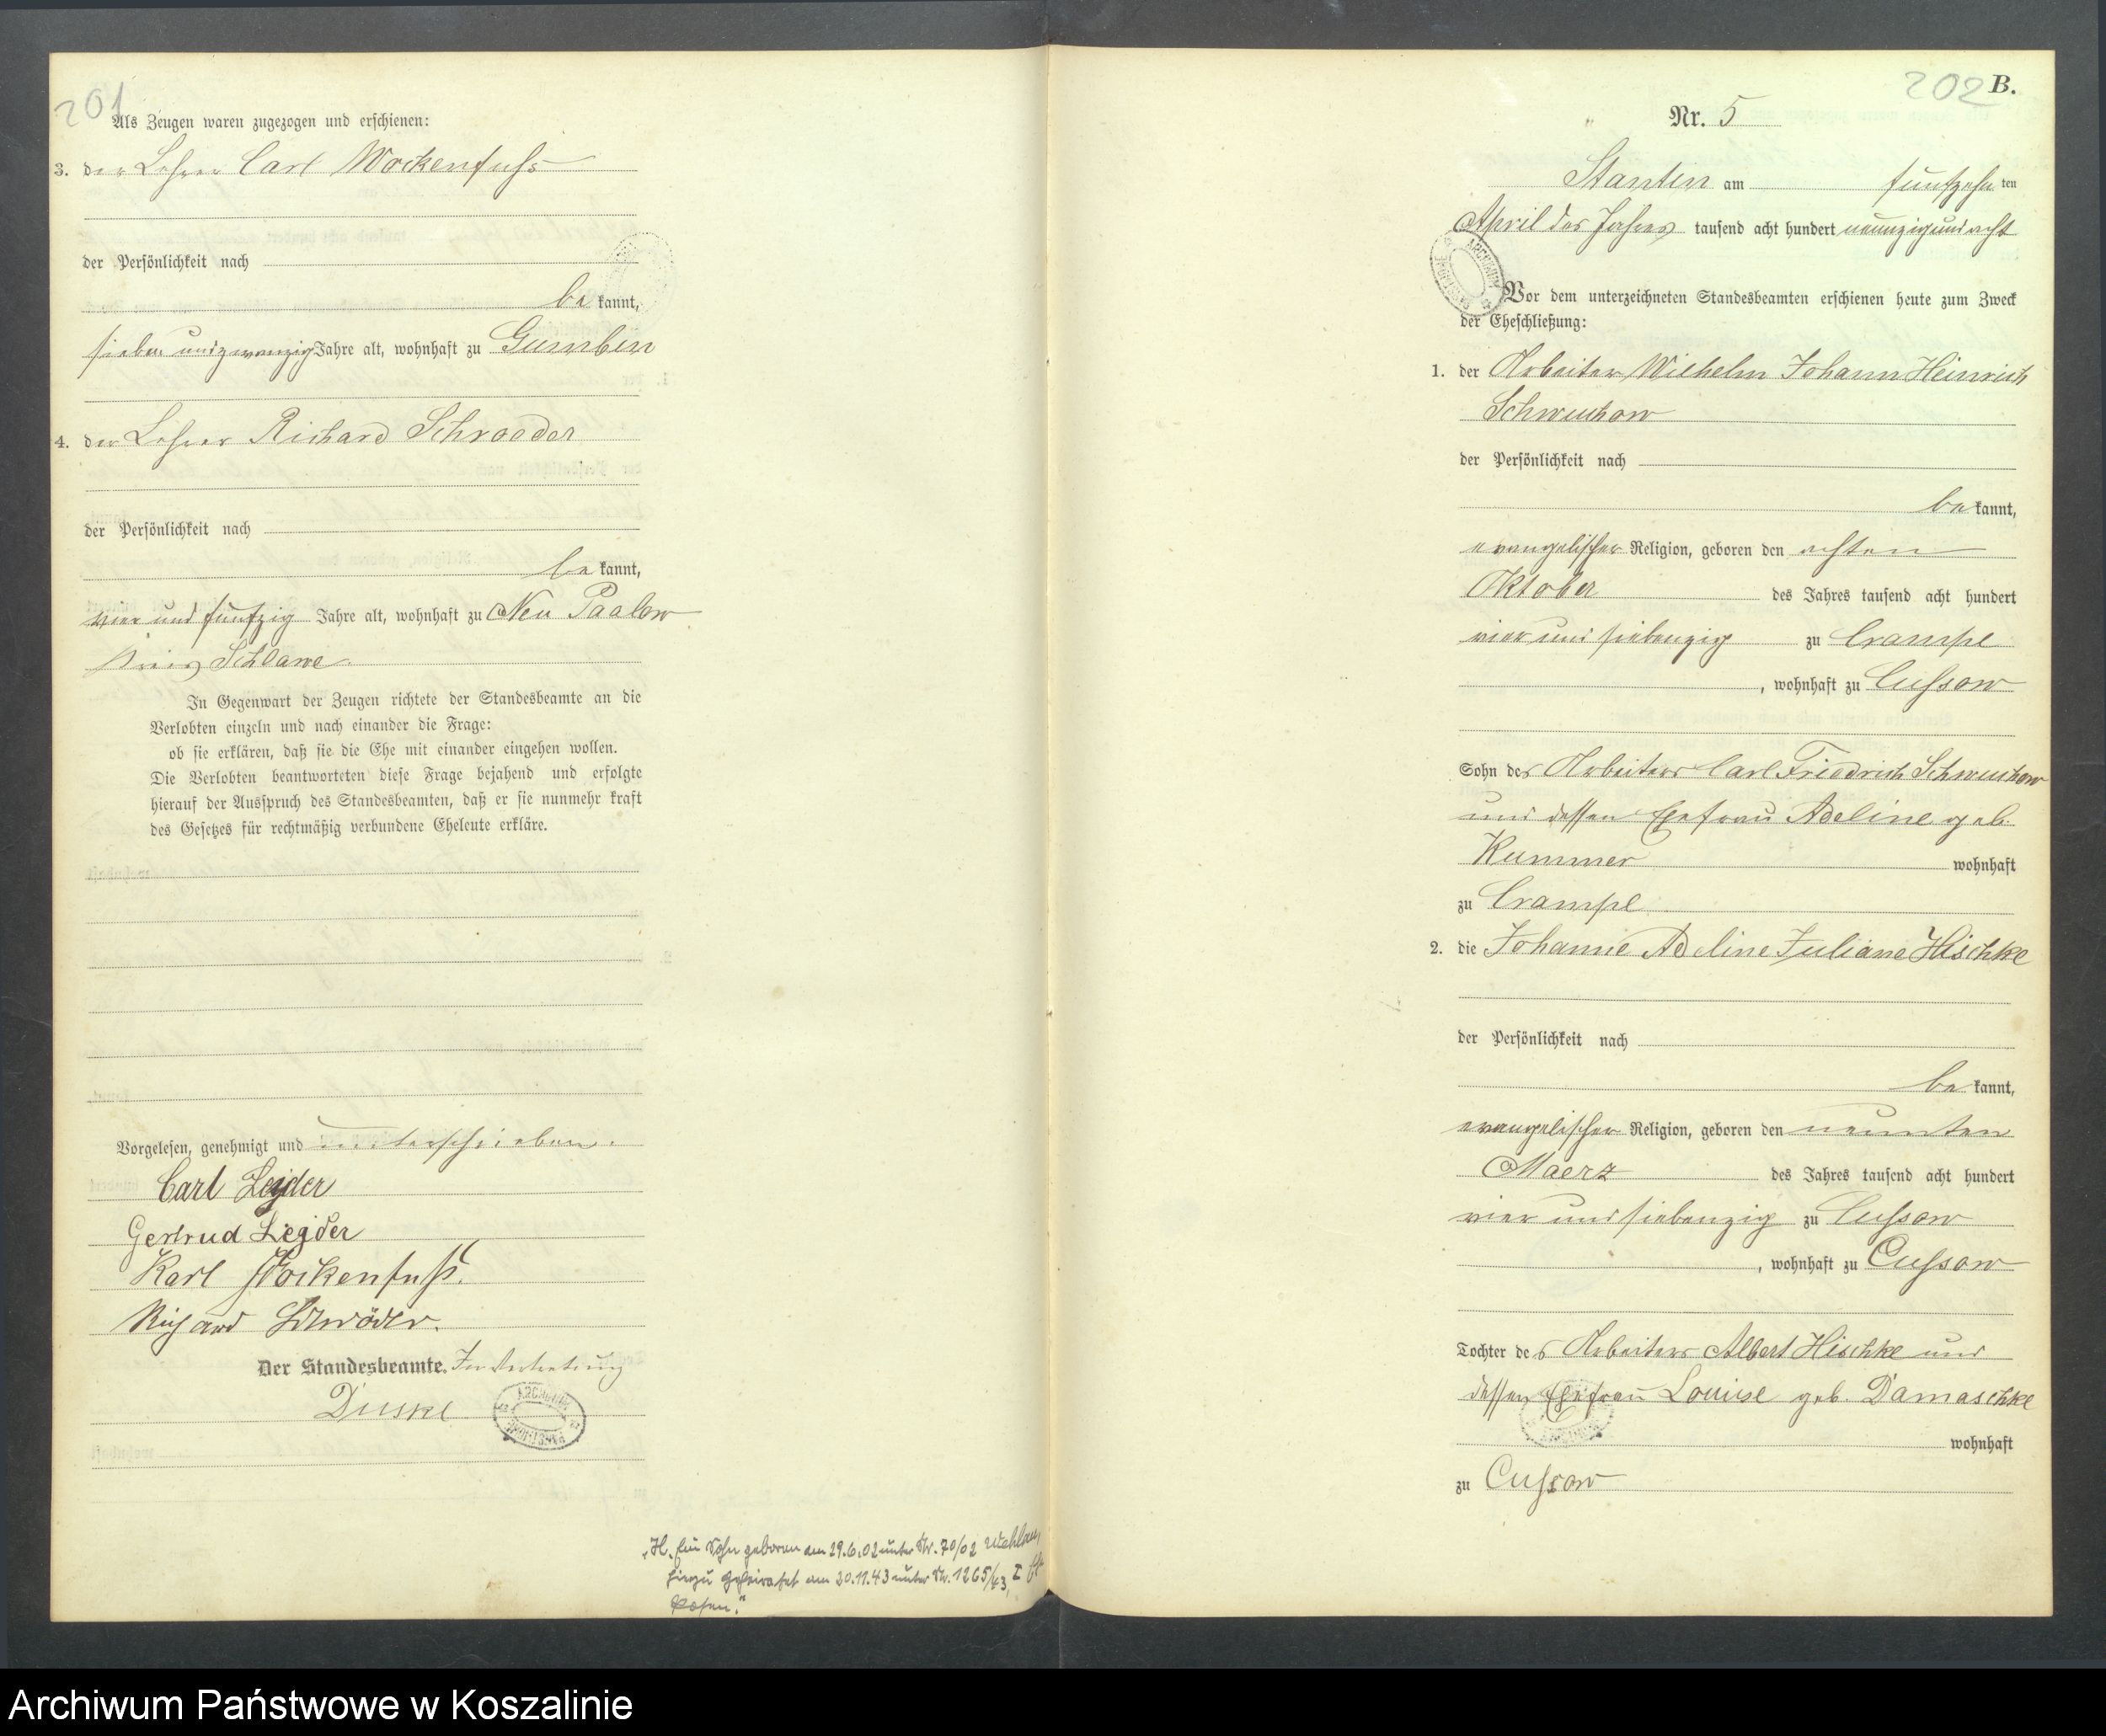 201
Als Zeugen waren zugezogen und erschienen:
3. der Lehrer Carl Wockenfuss
der Persönlichkeit nach
be kannt,
sieben und zwanzig Jahre alt, wohnhaft zu Gumbin
4. der Lehrer Richard Schroeder
der Persönlichkeit nach
be kannt,
vier und fünfzig Jahre alt, wohnhaft zu Neu Paalow
Kreis Schlawe.
In Gegenwart der Zeugen richtete der Standesbeamte an die
Verlobten einzeln und nach einander die Frage:
ob sie erklären, daß sie die Ehe mit einander eingehen wollen.
Die Verlobten beantworteten diese Frage bejahend und erfolgte
hierauf der Ausspruch des Standesbeamten, daß er sie nunmehr kraft
des Gesetzes für rechtmäßig verbundene Eheleute erkläre.
Vorgelesen, genehmigt und unterschrieben.
Carl
Gertrud
Karl Wockenfuß.
Richard Schröder.
Der Standesbeamte. In Vertretung
H. Ein Sohn geboren am 29.6.02 unter Nr. 70/02
geheiratet am 20.11.43 unter Nr. 1265/43, I
Posen."
202 B.
Nr. 5
Stantin am fünfzehn ten
April des Jahres tausend acht hundert neunzig und acht
Vor dem unterzeichneten Standesbeamten erschienen heute zum Zweck
der Eheschließung:
1. der Arbeiter Wilhelm Johann Heinrich
Schwuchow
der Persönlichkeit nach
be kannt,
evangelischer Religion, geboren den achten
Oktober des Jahres tausend acht hundert
vier und siebenzig zu Crampe
, wohnhaft zu Cussow
Sohn des Arbeiters Carl Friedrich Schwuchow
und dessen Ehefrau Adeline geb.
Kummer wohnhaft
zu Crampe
2. die Johanne Adeline Juliane Hischke
der Persönlichkeit nach
be kannt,
evangelischer Religion, geboren den neunten
Maerz des Jahres tausend acht hundert
vier und siebenzig zu Cussow
, wohnhaft zu Cussow
Tochter des Arbeiters Albert Hischke und
dessen Ehefrau Louise geb. Damaschke
wohnhaft
zu Cussow
Archiwum Państwowe w Koszalinie